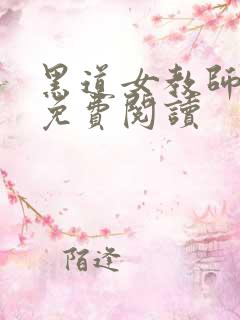 黑道女教師
免費閱讀
陌逢